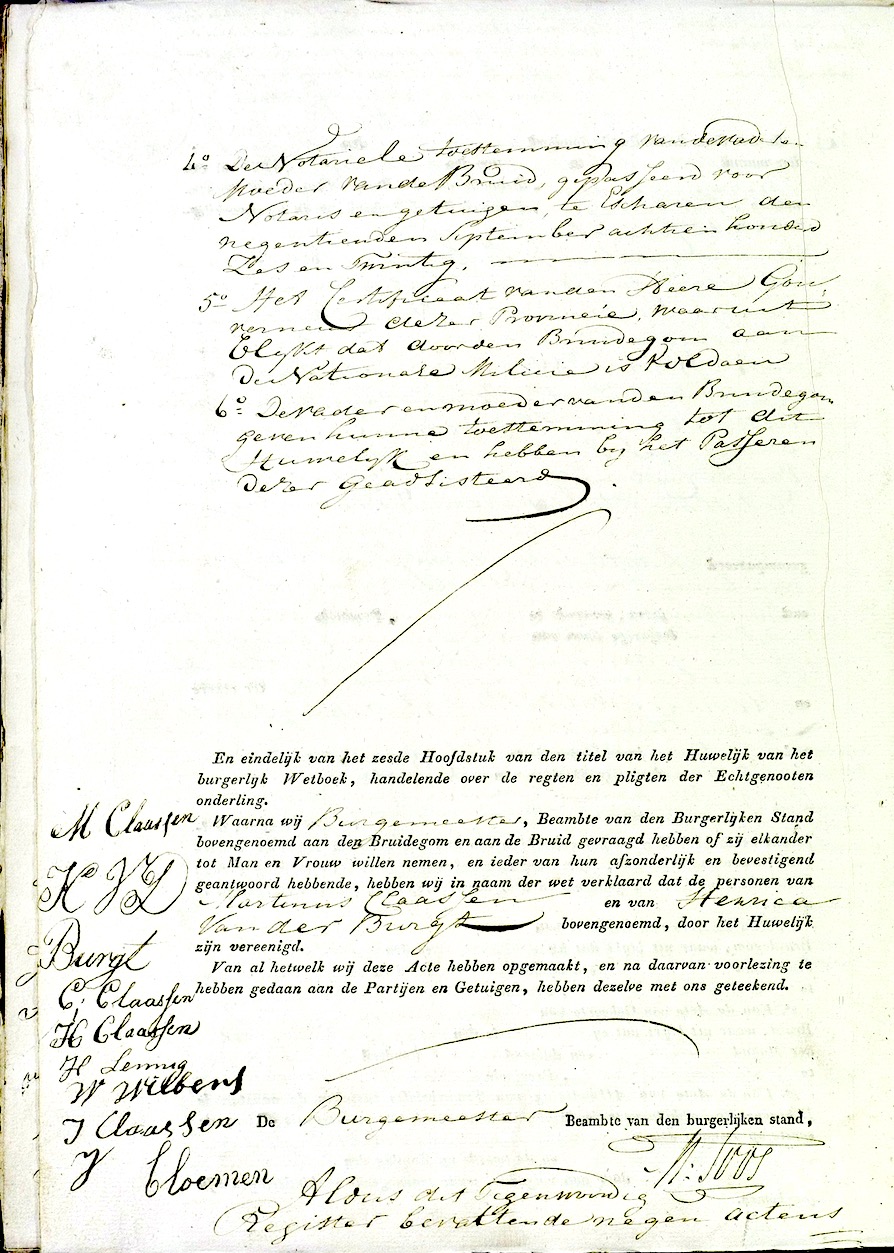 4o De Notariele toestemming van de
Moeder van de Bruid, gepasseerd voor
Notaris en getuigen, te Escharen den
negentienden September achtien honderd
Zes en Twintig.
5o Het Certificaat van den Heere Gou
verneur dezer Provincie, waaruit
blykt dat door den Bruidegom aan
De Nationale Milicie is voldaen
6o De vader en moeder van den Bruidegom
geven hunne toestemming tot dit
Huwelyk en hebben by het Passeren
Dezer Geadsisteerd.
En eindelijk van het zesde Hoofdstuk van den titel van het Huwelijk van het
burgerlyk Wetboek, handelende over de regten en pligten der Echtgenooten
onderling.
M Claassen
Waarna wij Burgemeester, Beambte van den Burgerlijken Stand
bovengenoemd aan den Bruidegom en aan de Bruid gevraagd hebben of zij elkander
tot Man en Vrouw willen nemen, en ieder van hun afzonderlijk en bevestigend
geantwoord hebbende, hebben wij in naam der wet verklaard dat de personen van
Martinus Claassen en van Henrica
Van der Burgt bovengenoemd, door het Huwelijk
zijn vereenigd.
Burgt
Van al hetwelk wij deze Acte hebben opgemaakt, en na daarvan voorlezing te
hebben gedaan aan de Partijen en Getuigen, hebben dezelve met ons geteekend.
C: Claassen
H Claassen
W Wilbers
J Claassen
De Burgemeester Beambte van den burgerlijken stand,
J Cloemen
Alous dit Tegenwoordig
Register bevattende negen actens